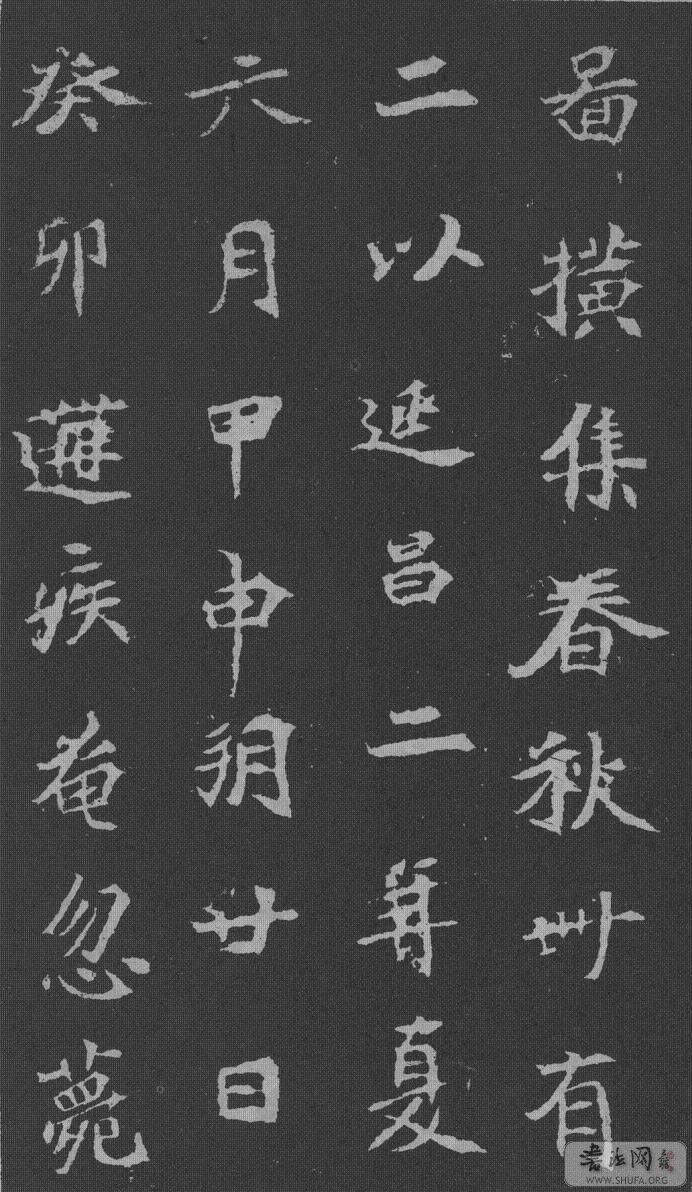 啚撗集春秋卅有
二以延昌二年夏
六月甲申朔廿日
癸卯遘疾奄忽薨
書法网
WWW.SHUFA.ORG